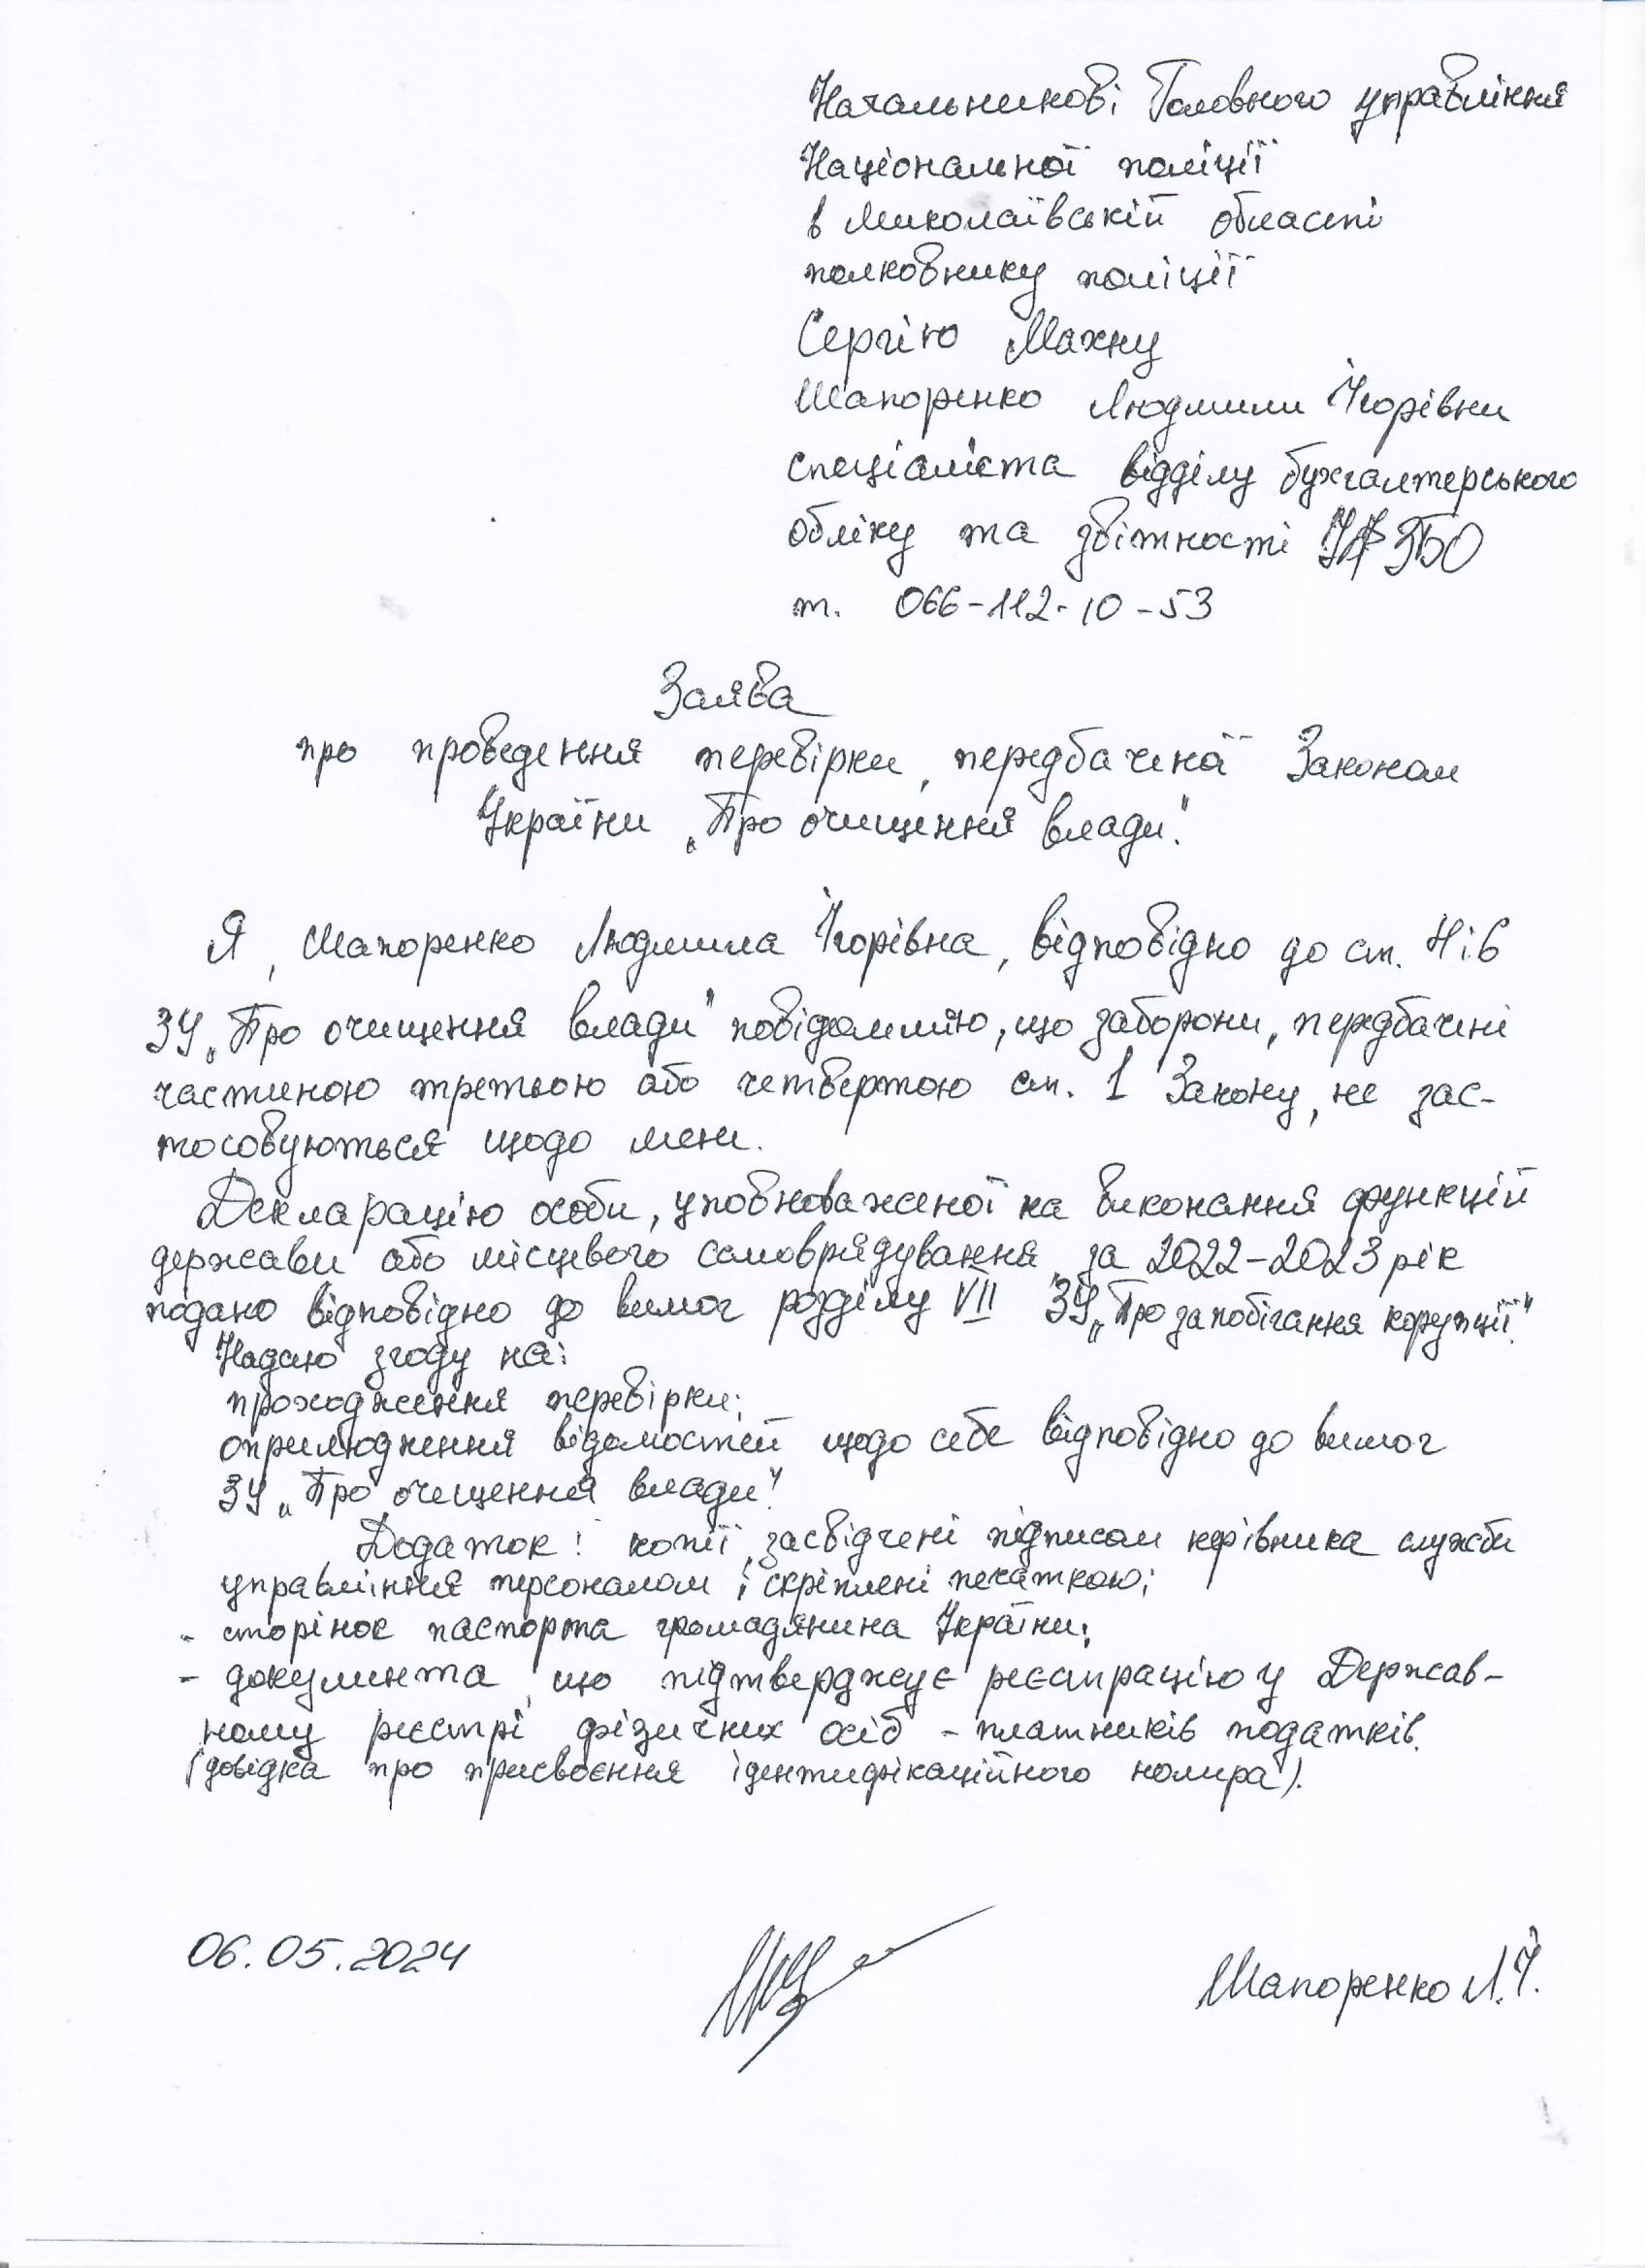 Начальникові Головного управління
Національної поліції
в Миколаївській області
полковнику поліції
Сергію Махну
Шапоренко Людмили Ігорівни
спеціаліста відділу бухгалтерського
обліку та звітності
т. 066-112-10-53
Заява
про проведення перевірки, передбаченої Законом
України „Про очищення влади".
Я, Шапоренко Людмила Ігорівна, відповідно до ст. 4 і 6
ЗУ „Про очищення влади" повідомляю, що заборони, передбачені
частиною третьою або четвертою ст. 1 Закону, не зас-
тосовуються щодо мене.
Декларацію особи, уповноваженої на виконання функцій
держави або місцевого самоврядування, за 2022-2023 рік
подано відповідно до вимог розділу VII ЗУ „Про запобігання корупції".
Надаю згоду на:
проходження перевірки;
оприлюднення відомостей щодо себе відповідно до вимог
ЗУ „Про очищення влади".
Додаток: копії, засвідчені підписом керівника служби
управління персоналом і скріплені печаткою;
- сторінок паспорта громадянина України;
- документа, що підтверджує реєстрацію у Держав-
ному реєстрі фізичних осіб - платників податків.
(довідка про присвоєння ідентифікаційного номера).
06.05.2024 Шапоренко Л.І.